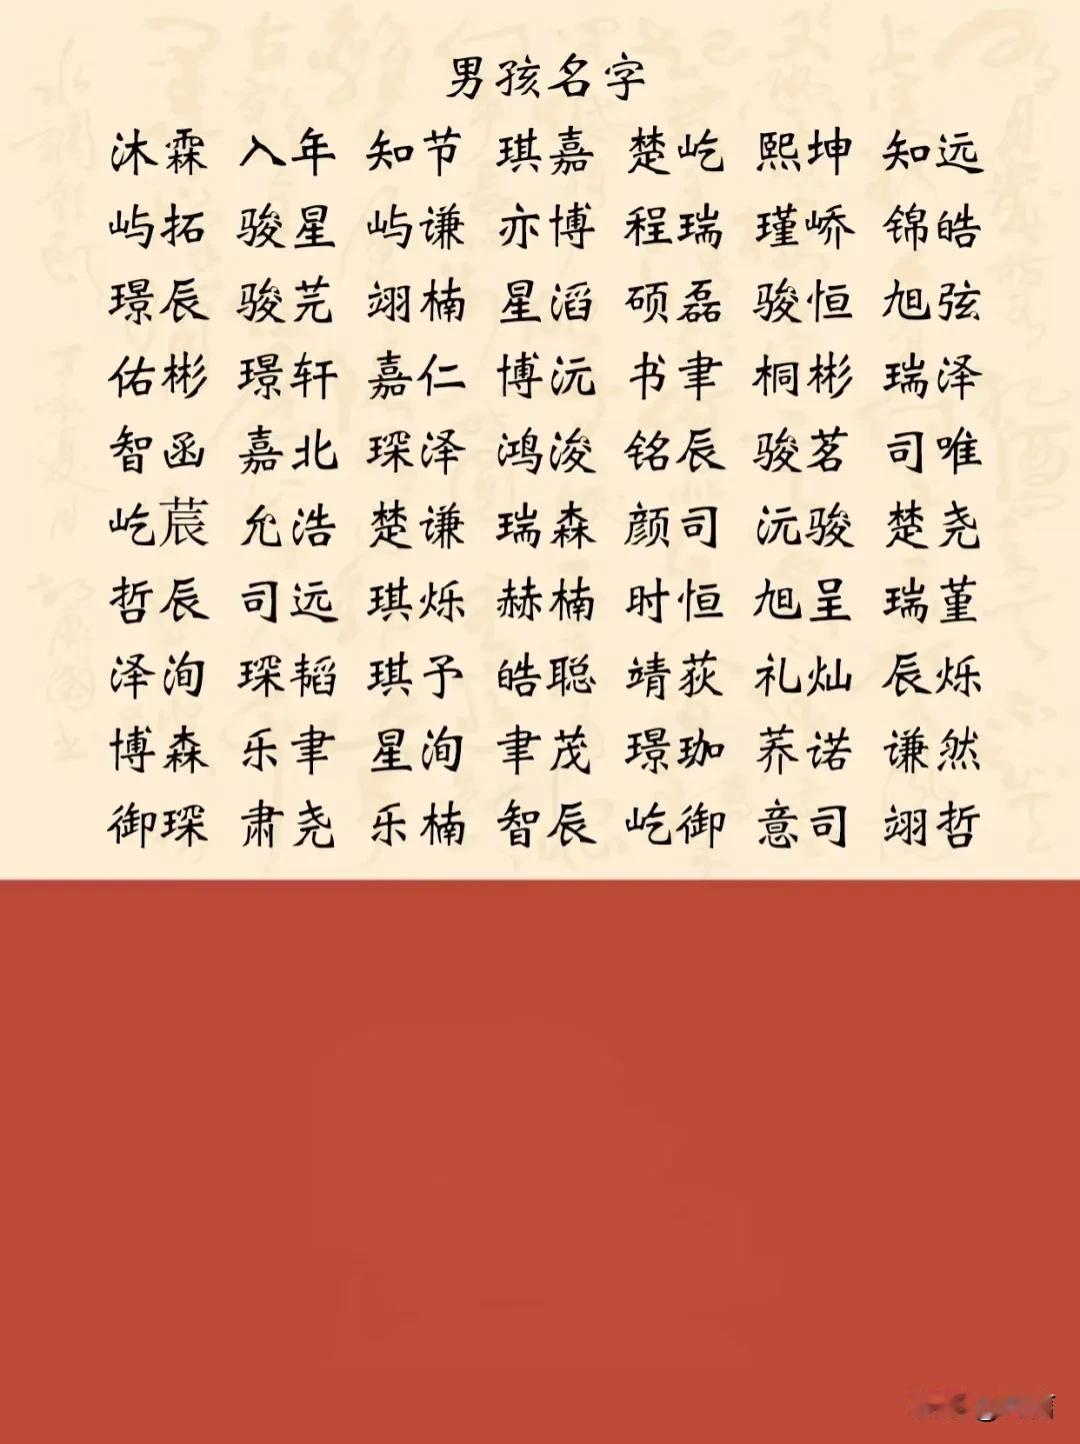 男孩名字
沐霖 入年 知节 琪嘉 楚屹 熙坤 知远
屿拓 骏星 屿谦 亦博 程瑞 瑾峤 锦皓
璟辰 骏芫 翊楠 星滔 硕磊 骏恒 旭弦
佑彬 璟轩 嘉仁 博沅 书聿 桐彬 瑞泽
智函 嘉北 琛泽 鸿浚 铭辰 骏茗 司唯
屹莀 允浩 楚谦 瑞森 颜司 沅骏 楚尧
哲辰 司远 琪烁 赫楠 时恒 旭呈 瑞堇
泽洵 琛韬 琪予 皓聪 靖荻 礼灿 辰烁
博森 乐聿 星洵 聿茂 璟珈 荞诺 谦然
御琛 肃尧 乐楠 智辰 屹御 意司 翊哲